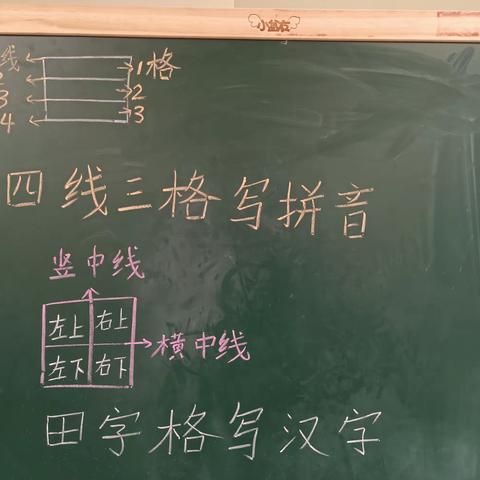 小盆友
线 1格
2
3 2
4 3
四线三格写拼音
竖中线
左上 右上
横中线
左下 右下
田字格写汉字